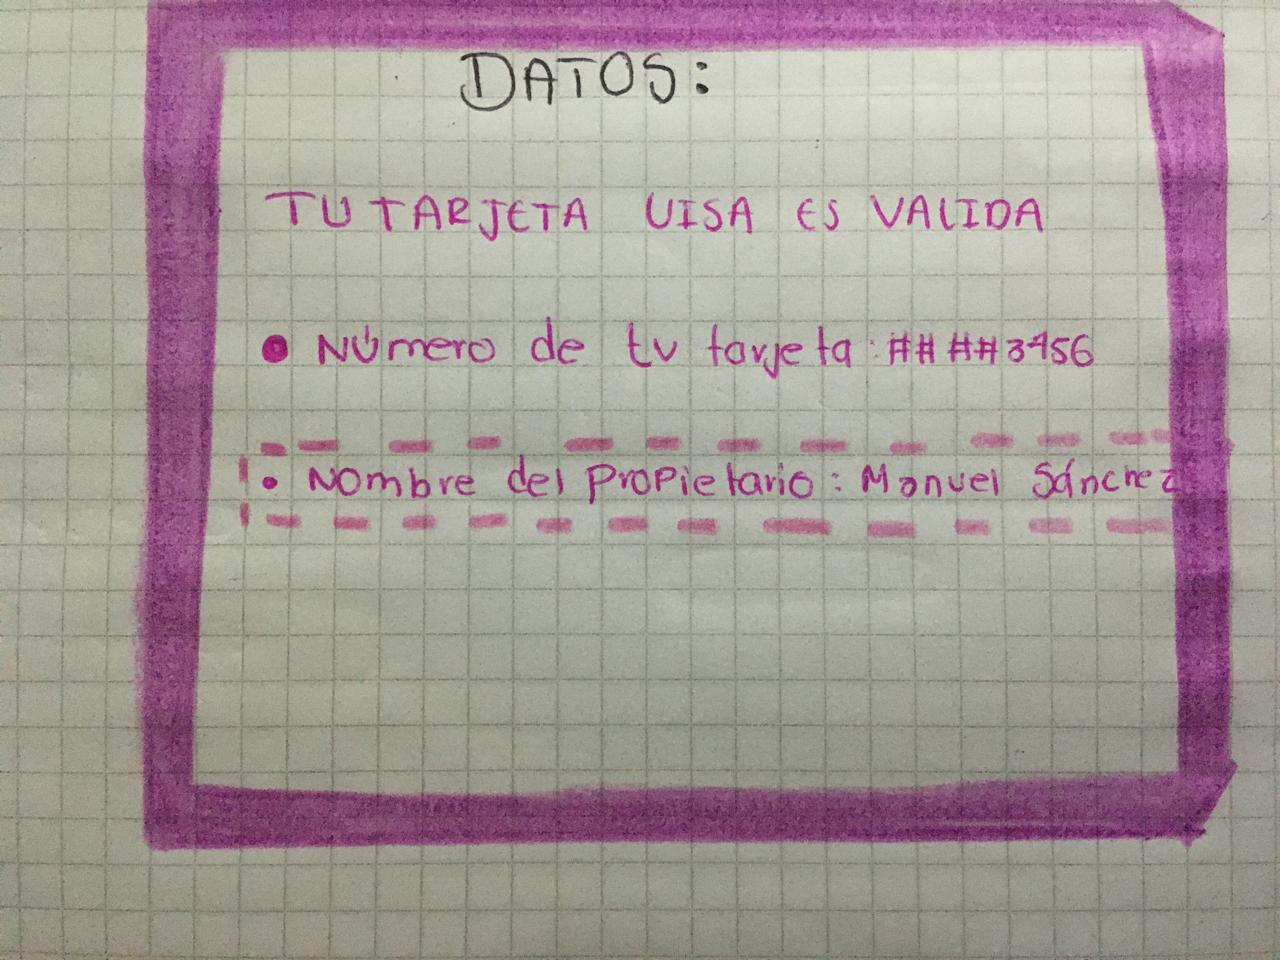 DATOS:
TU TARJETA VISA ES VALIDA
• NÚmero de tu tarjeta: ## ##3456
• NOmbre del propietario: Manuel Sánchez